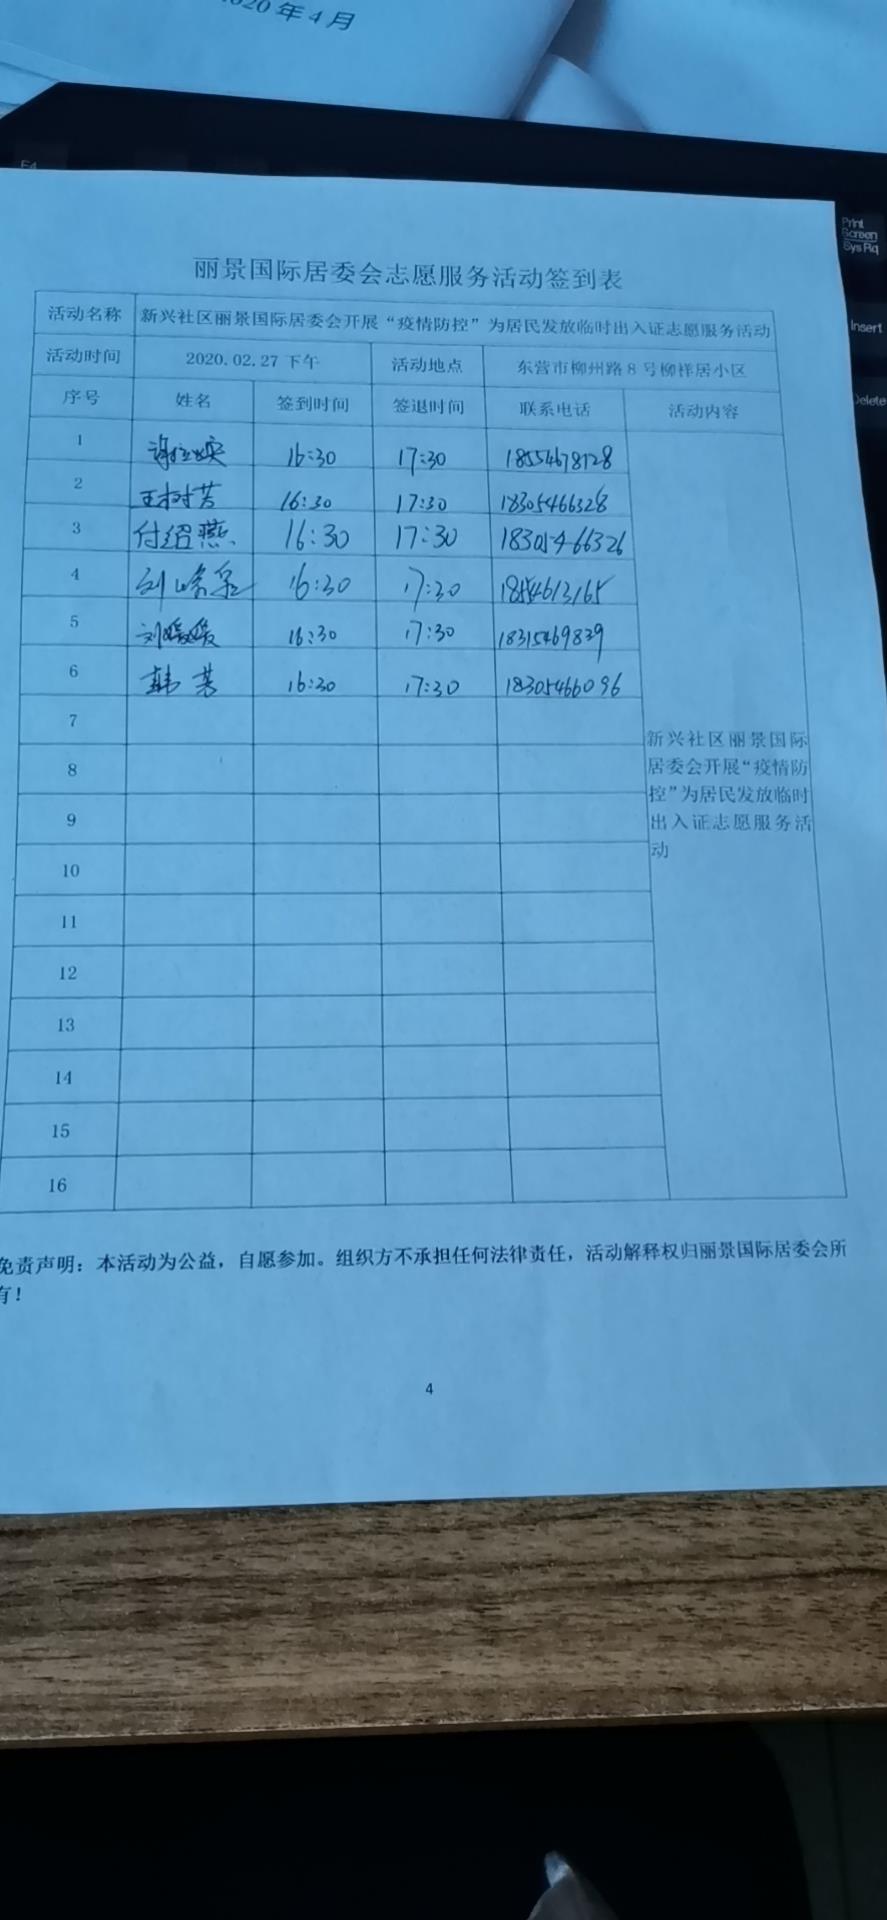 2020年4月
F4
Print
Screen
Sys Rq
Insert
Delete
丽景国际居委会志愿服务活动签到表
活动名称 新兴社区丽景国际居委会开展“疫情防控”为居民发放临时出入证志愿服务活动
活动时间 2020.02.27下午 活动地点 东营市柳州路8号柳祥居小区
序号 姓名 签到时间 签退时间 联系电话 活动内容
1 16:30 17:30 18554678128
2 王树芳 16:30 17:30 18305466328
3 付绍燕 16:30 17:30 18305466326
4 16:30 17:30
5 刘媛媛 16:30 17:30 18315469839
6 韩芳 16:30 17:30 18305466096
7
8
9
10
11
12
13
14
15
16
新兴社区丽景国际
居委会开展“疫情防
控”为居民发放临时
出入证志愿服务活
动
免责声明：本活动为公益，自愿参加。组织方不承担任何法律责任，活动解释权归丽景国际居委会所
有！
4